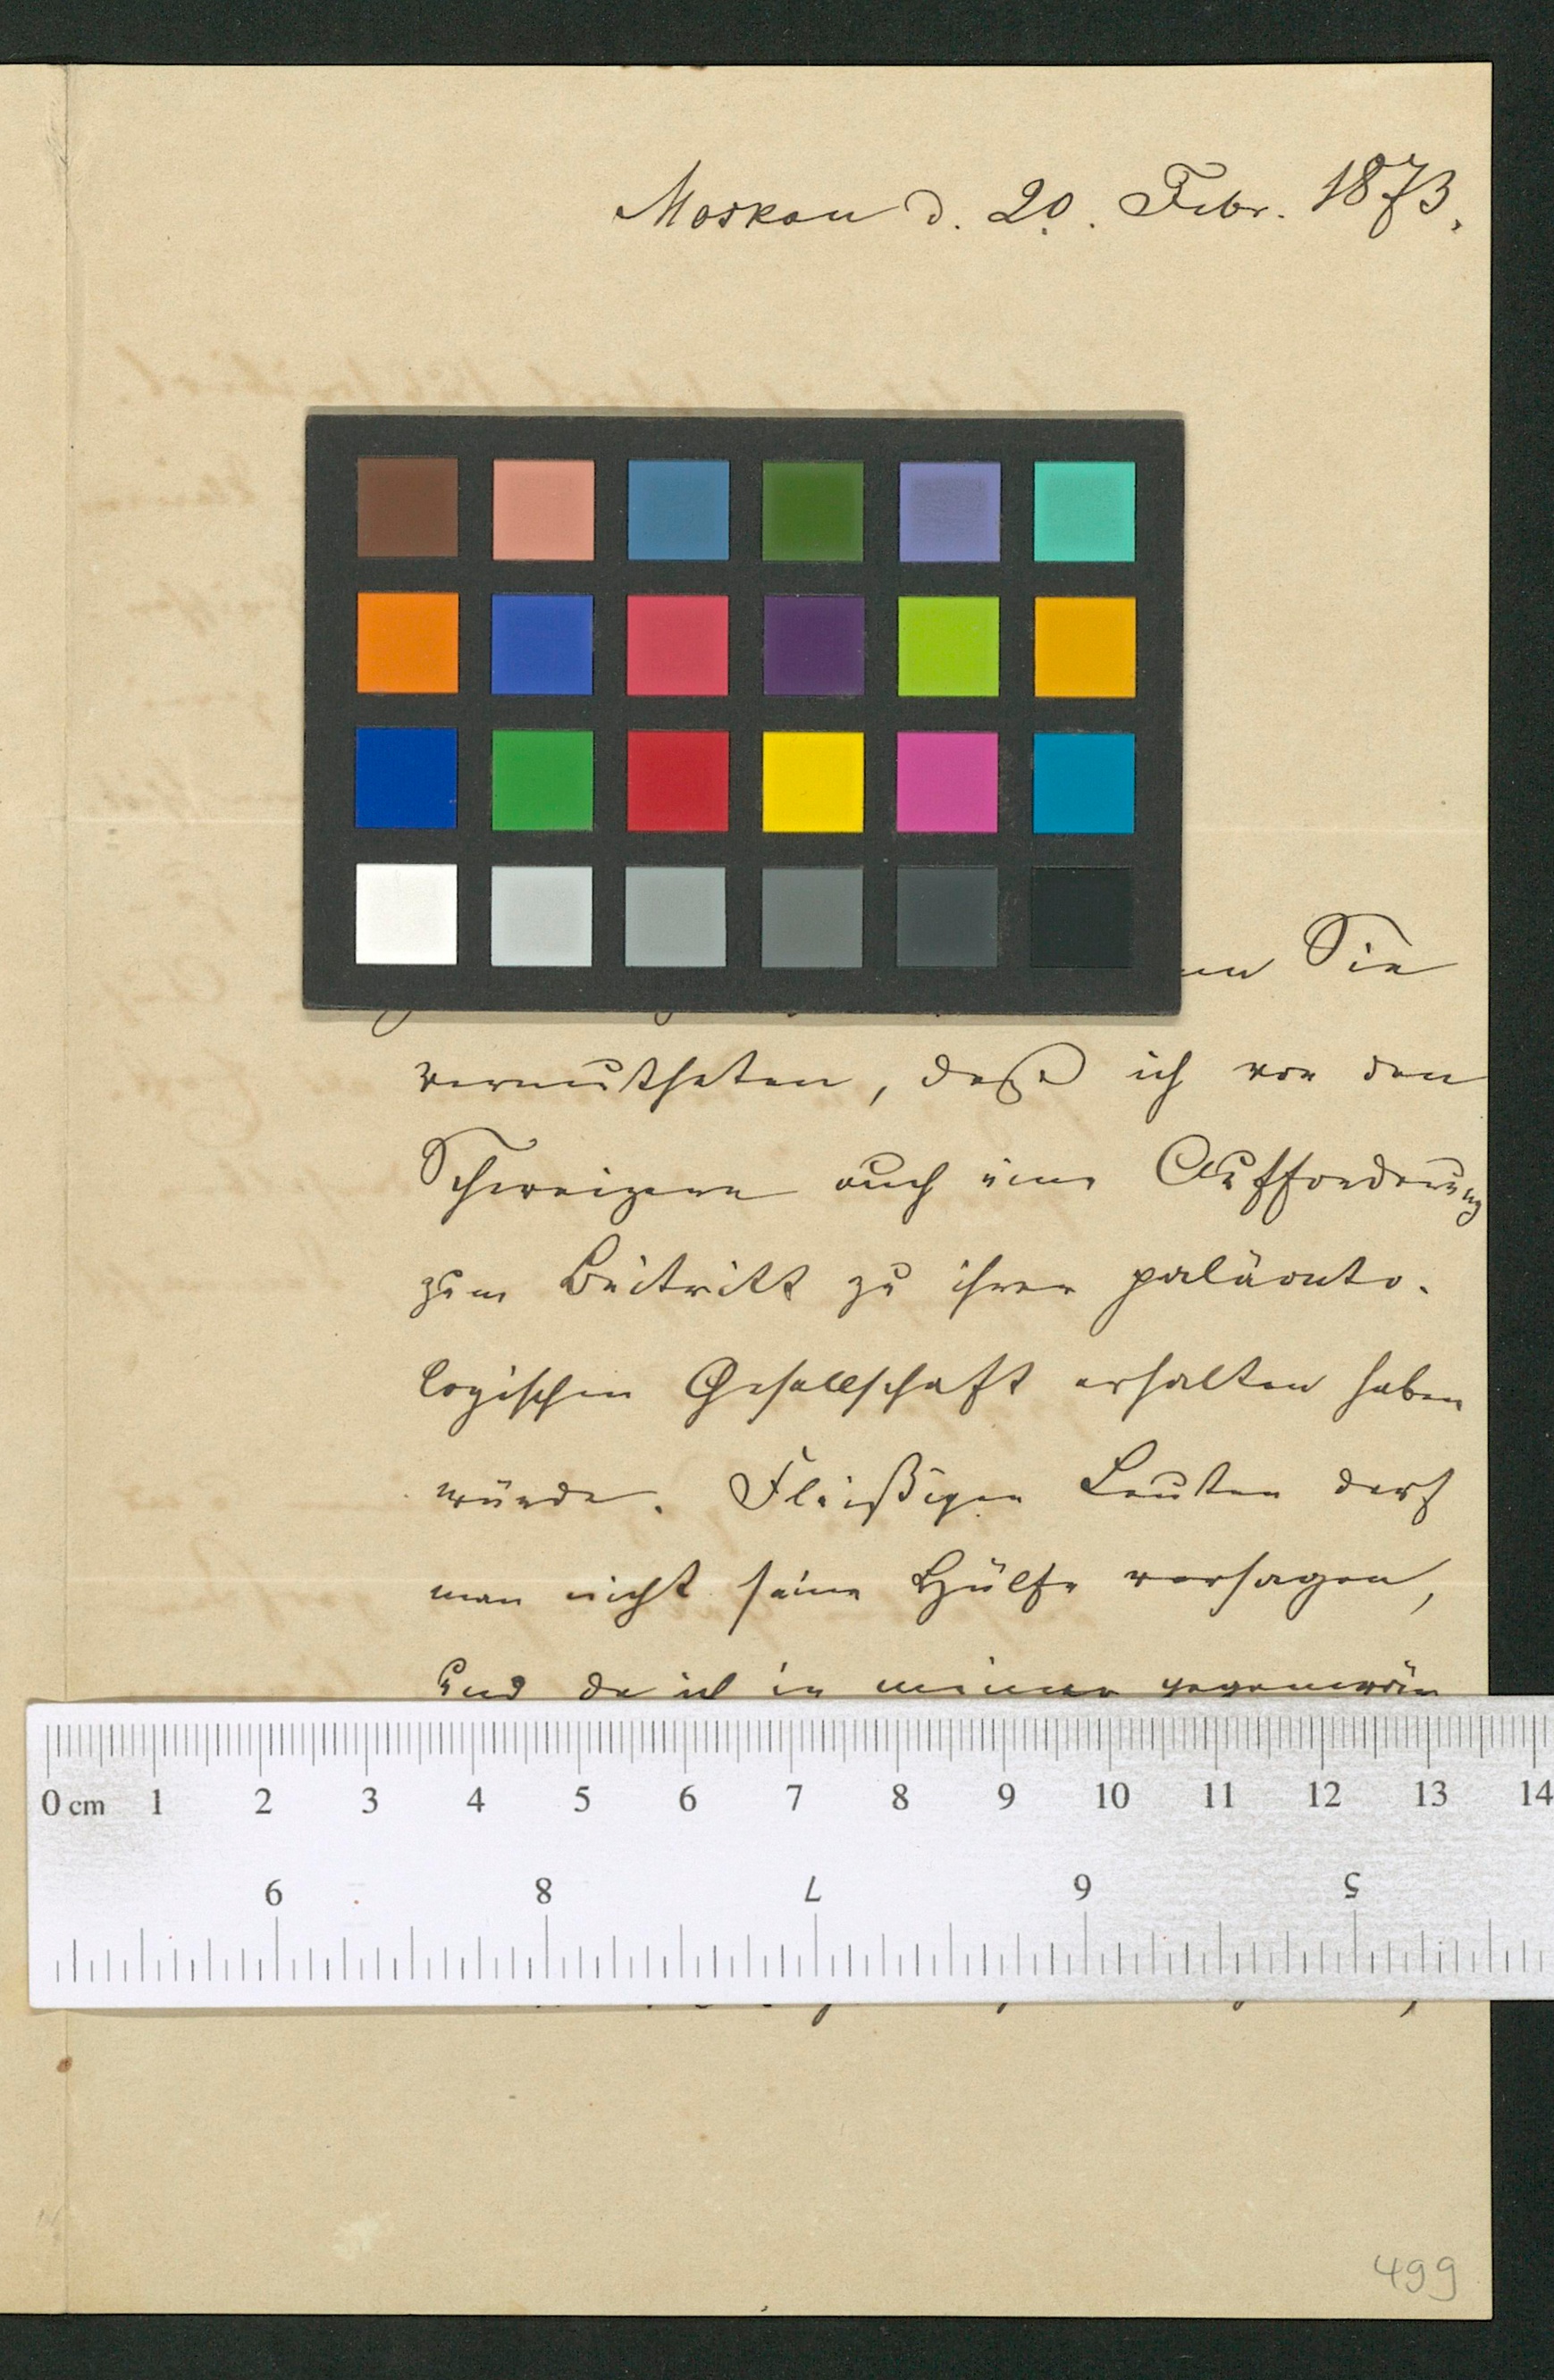 Moskau d. 20. Febr. 1873.
Sie
vermutheten, daß ich von den
Schweizern auch eine Aufforderung
zum Beitritt zu ihrer paläonto-
logischen Gesellschaft erhalten haben
würde. Fleißigen Leuten darf
man nicht seine Hülfe versagen,
und da ich in meiner gegenwär
0 cm 1 2 3 4 5 6 7 8 9 10 11 12 13 14
9 8 7 6 5
499